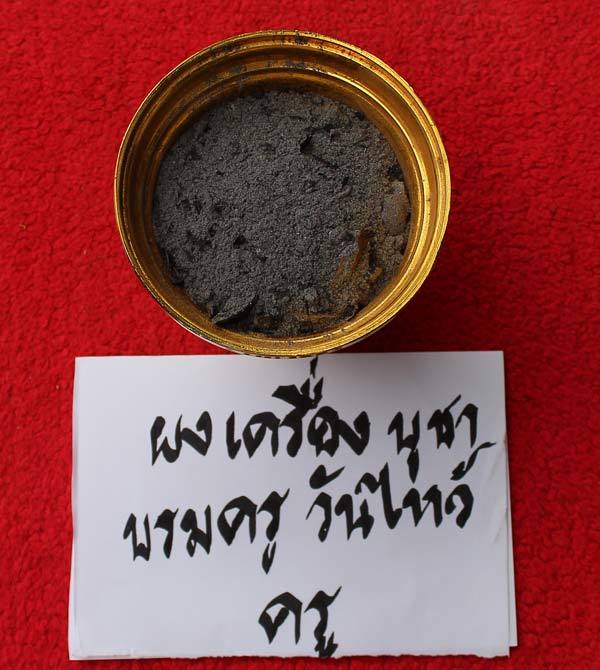 ผงเครื่อง บูชา
บรมครู วันไหว้
ครู